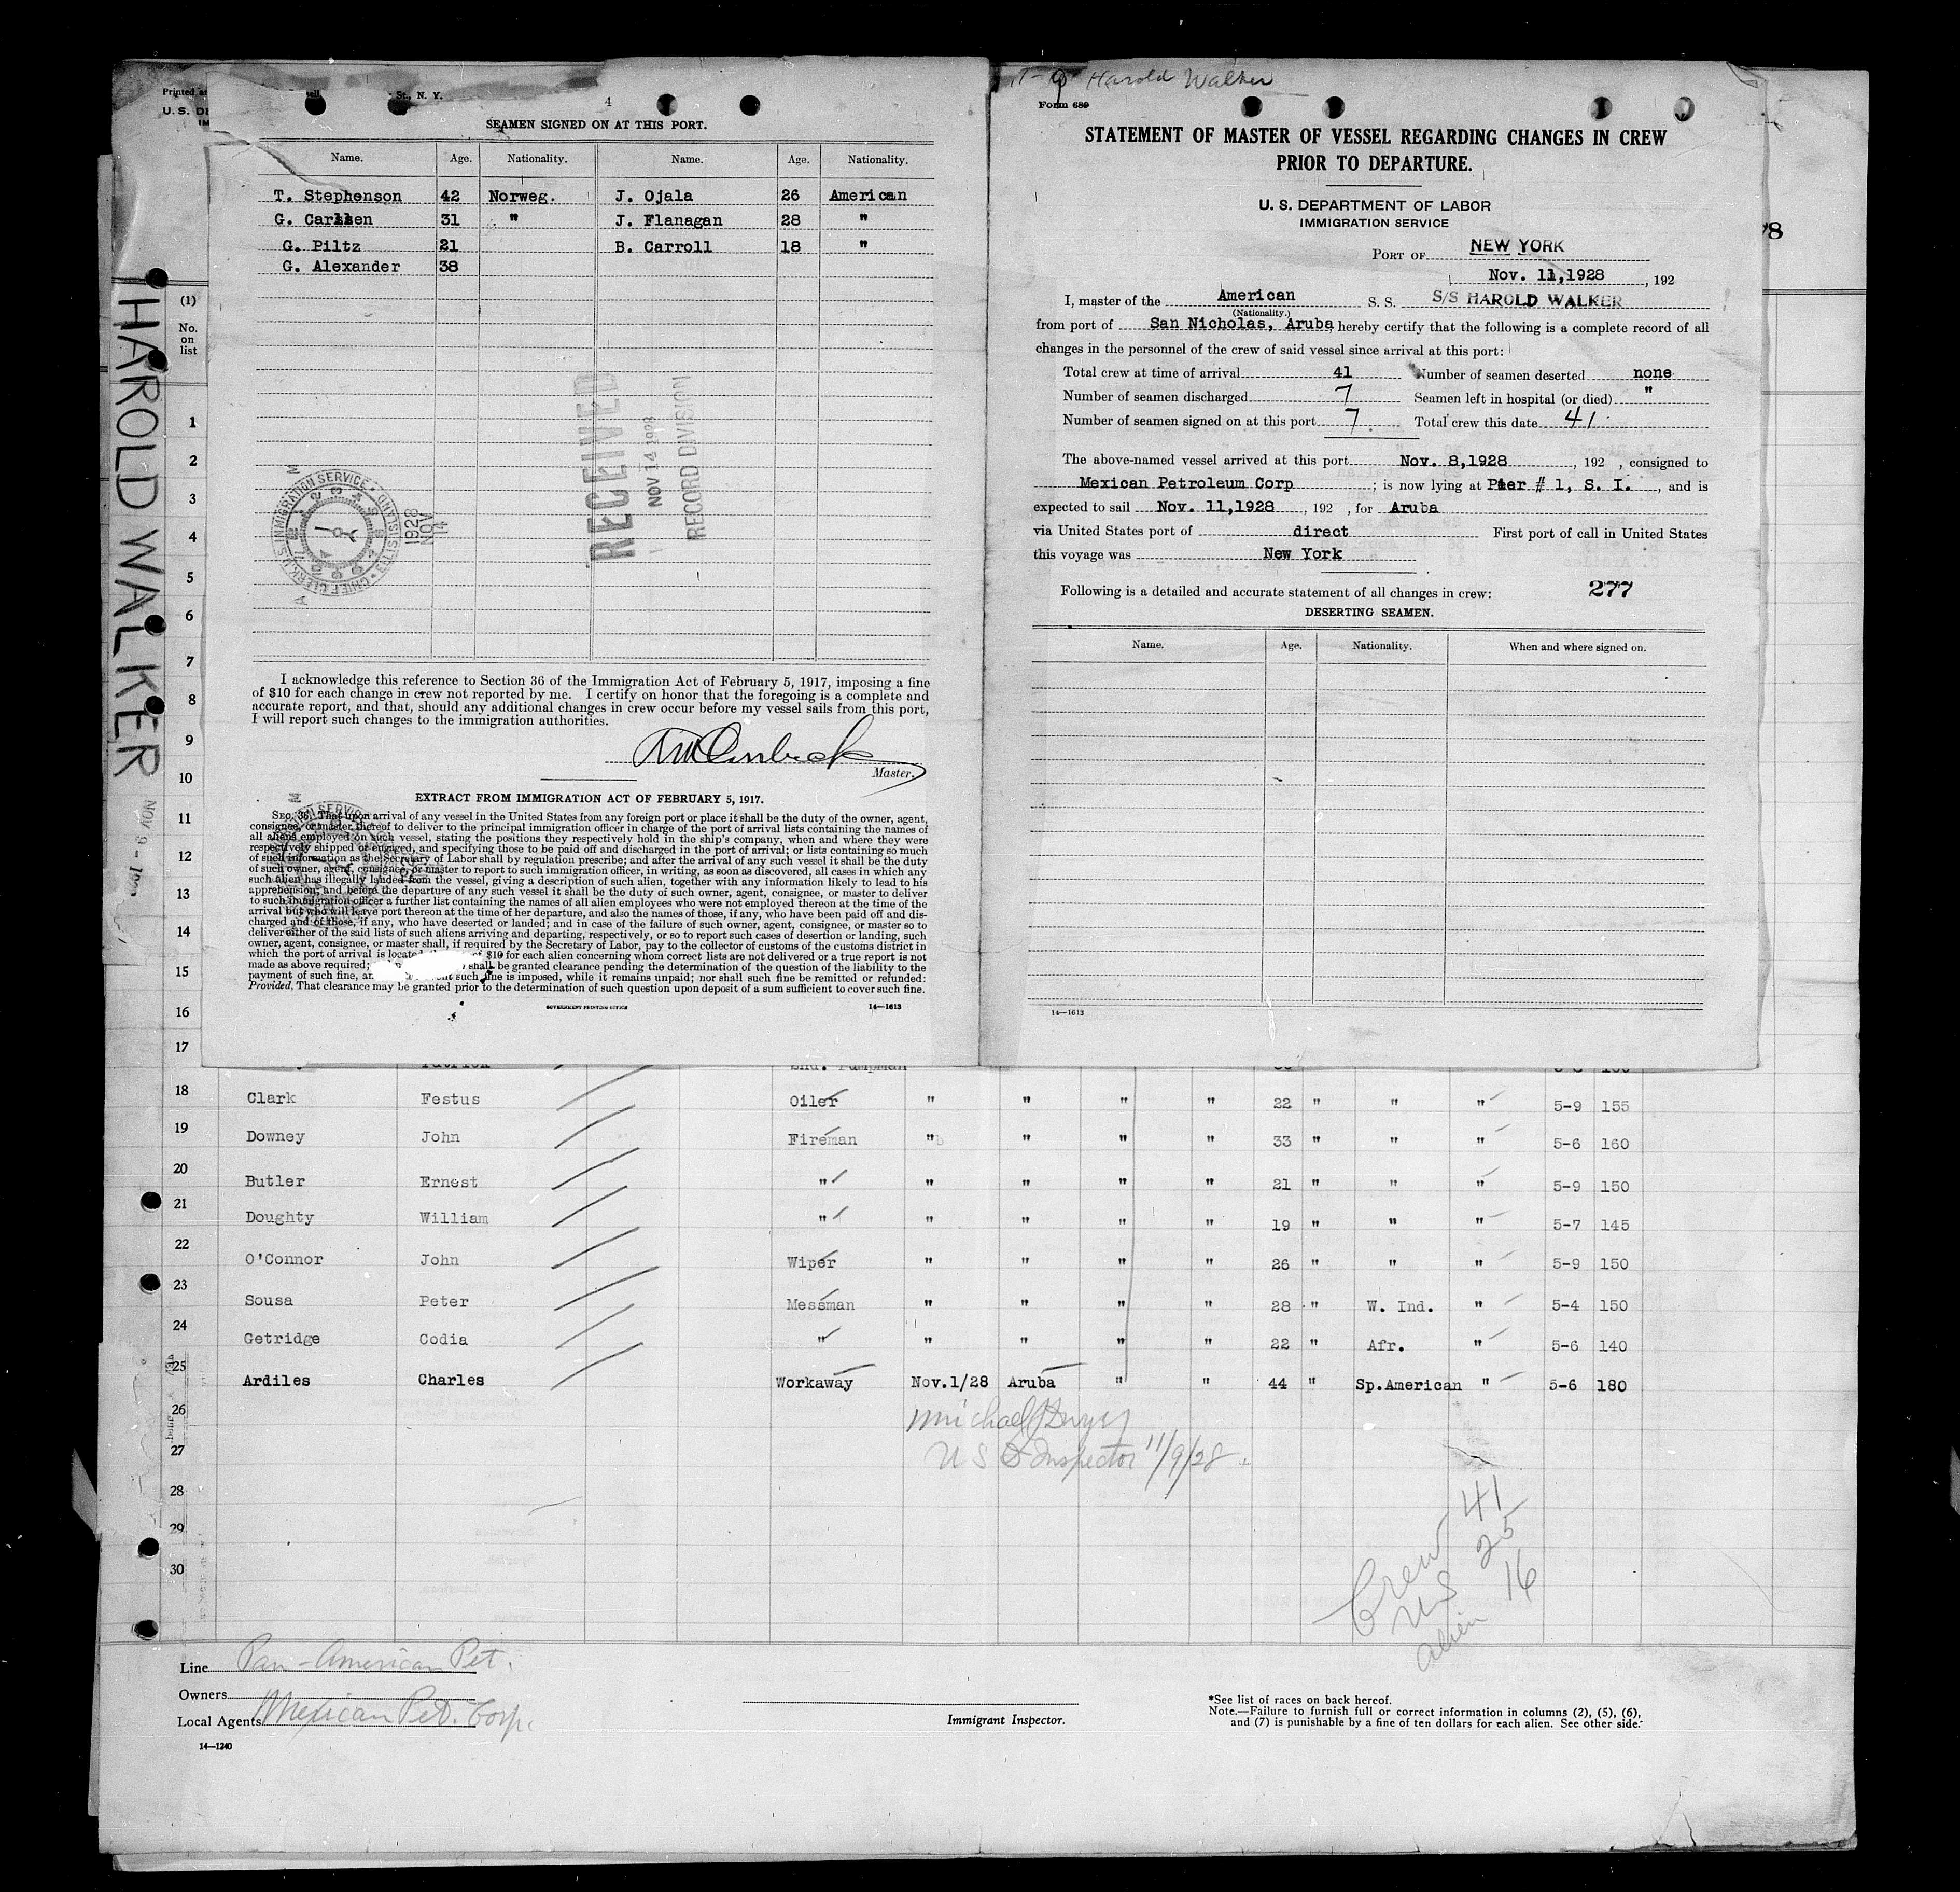 HAROLD WALKER
NOV 9 -
Printed
St., N. Y.
U. S. DE
IM
4
SEAMEN SIGNED ON AT THIS PORT.
Name. Age. Nationality. Name. Age. Nationality.
T. Stephenson 42 Norweg. J. Ojala 26 American
G. Carlsen 31 " J. Flanagan 28 "
G. Piltz 21 B. Carroll 18 "
G. Alexander 38
RECEIVED
NOV 14 1928
RECORD DIVISION
U.S. IMMIGRATION SERVICE • CHIEF CLERK'S DIVISION
1928
NOV
14
I acknowledge this reference to Section 36 of the Immigration Act of February 5, 1917, imposing a fine
of $10 for each change in crew not reported by me. I certify on honor that the foregoing is a complete and
accurate report, and that, should any additional changes in crew occur before my vessel sails from this port,
I will report such changes to the immigration authorities.
Master.
EXTRACT FROM IMMIGRATION ACT OF FEBRUARY 5, 1917.
SEC. 36. That upon arrival of any vessel in the United States from any foreign port or place it shall be the duty of the owner, agent,
consignee, or master thereof to deliver to the principal immigration officer in charge of the port of arrival lists containing the names of
all aliens employed on such vessel, stating the positions they respectively hold in the ship's company, when and where they were
respectively shipped or engaged, and specifying those to be paid off and discharged in the port of arrival; or lists containing so much
of such information as the Secretary of Labor shall by regulation prescribe; and after the arrival of any such vessel it shall be the duty
of such owner, agent, consignee, or master to report to such immigration officer, in writing, as soon as discovered, all cases in which any
such alien has illegally landed from the vessel, giving a description of such alien, together with any information likely to lead to his
apprehension; and before the departure of any such vessel it shall be the duty of such owner, agent, consignee, or master to deliver
to such immigration officer a further list containing the names of all alien employees who were not employed thereon at the time of the
arrival but who will leave port thereon at the time of her departure, and also the names of those, if any, who have been paid off and dis-
charged and of those, if any, who have deserted or landed; and in case of the failure of such owner, agent, consignee, or master so to
deliver either of the said lists of such aliens arriving and departing, respectively, or so to report such cases of desertion or landing, such
owner, agent, consignee, or master shall, if required by the Secretary of Labor, pay to the collector of customs of the customs district in
which the port of arrival is located of $10 for each alien concerning whom correct lists are not delivered or a true report is not
made as above required; shall be granted clearance pending the determination of the question of the liability to the
payment of such fine, an such fine is imposed, while it remains unpaid; nor shall such fine be remitted or refunded:
Provided, That clearance may be granted prior to the determination of such question upon deposit of a sum sufficient to cover such fine.
GOVERNMENT PRINTING OFFICE 14—1613
Harold Walker
Form 689
STATEMENT OF MASTER OF VESSEL REGARDING CHANGES IN CREW
PRIOR TO DEPARTURE.
U. S. DEPARTMENT OF LABOR
IMMIGRATION SERVICE
PORT OF NEW YORK
Nov. 11,1928, 192
I, master of the American S. S. S/S HAROLD WALKER
(Nationality.)
from port of San Nicholas, Aruba hereby certify that the following is a complete record of all
changes in the personnel of the crew of said vessel since arrival at this port:
Total crew at time of arrival 41 Number of seamen deserted none
Number of seamen discharged 7 Seamen left in hospital (or died) "
Number of seamen signed on at this port 7 Total crew this date 41
The above-named vessel arrived at this port Nov. 8,1928, 192 , consigned to
Mexican Petroleum Corp ; is now lying at Pier # 1, S. I. , and is
expected to sail Nov. 11,1928, 192 , for Aruba
via United States port of direct First port of call in United States
this voyage was New York
Following is a detailed and accurate statement of all changes in crew: 277
DESERTING SEAMEN.
Name. Age. Nationality. When and where signed on.
14—1613
(1)
No.
on
list
1
2
3
4
5
6
7
8
9
10
11
12
13
14
15
16
17
18 Clark Festus Oiler " " " " 22 " " " 5-9 155
19 Downey John Fireman " " " " 33 " " " 5-6 160
20 Butler Ernest " " " " " 21 " " " 5-9 150
21 Doughty William " " " " " 19 " " " 5-7 145
22 O'Connor John Wiper " " " " 26 " " " 5-9 150
23 Sousa Peter Messman " " " " 28 " W. Ind. " 5-4 150
24 Getridge Codia " " " " " 22 " Afr. " 5-6 140
25 Ardiles Charles Workaway Nov.1/28 Aruba " " 44 " Sp.American " 5-6 180
26
27
28
29
30
Michael J Dwyer
U S Inspector 11/9/28.
Crew 41
US 25
alien 16
Line Pan-American Pet.
Owners
Local Agents Mexican Pet. Corp.
14—1240
Immigrant Inspector.
*See list of races on back hereof.
Note.—Failure to furnish full or correct information in columns (2), (5), (6),
and (7) is punishable by a fine of ten dollars for each alien. See other side.